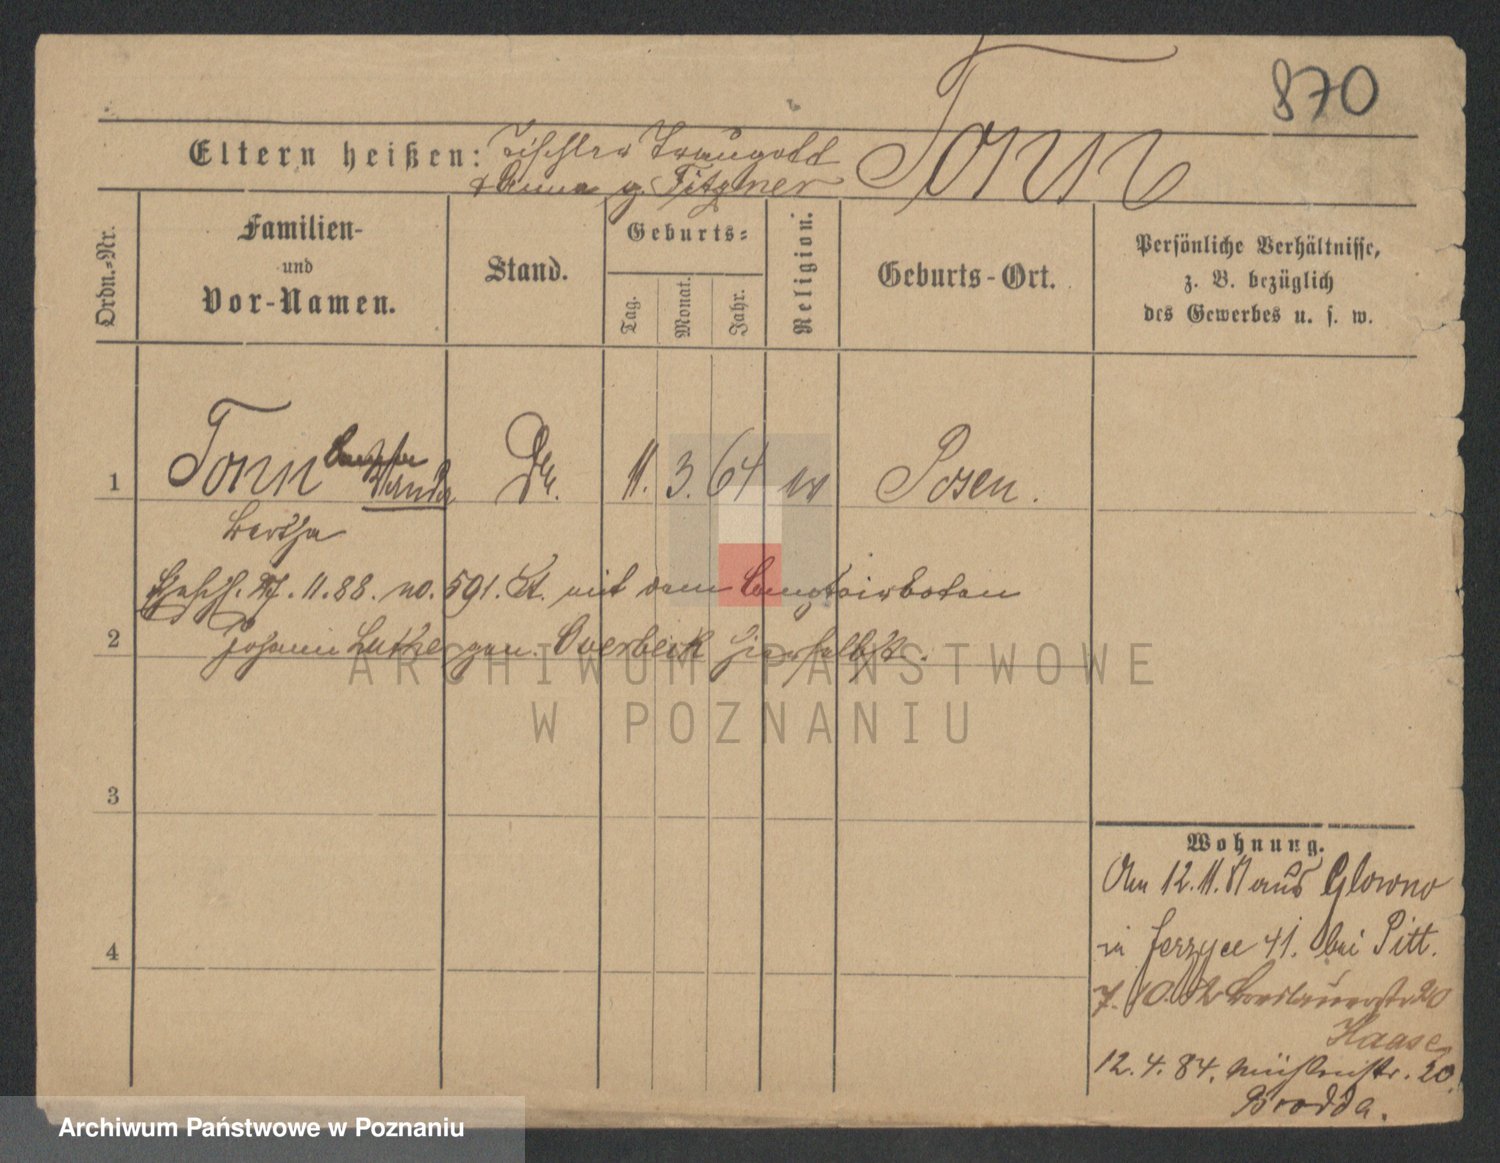 870
Tonn
Eltern heißen: Tischler Traugott
& Anna g. Fitzner
Ordn.-Nr.
Familien-
und
Vor-Namen.
Stand.
Geburts=
Tag.
Monat.
Jahr.
Religion.
Geburts-Ort.
Persönliche Verhältnisse,
z. B. bezüglich
des Gewerbes u. s. w.
1 Tonn Wanda 11. 3. 64 ev Posen.
Bertha
11. 88. no. 591. St. mit dem Comptoirboten
2 Johann Luther gen. Overbeck hierselbst.
3
4
Wohnung.
Am 12. 11. 81 aus Glowno
in Jerzyce 41. bei Pitt.
7. 10. 82 Breslauerstr 20
Haase
12. 4. 84. Mühlenstr. 20
Brodda.
ARCHIWUM PAŃSTWOWE
W POZNANIU
Archiwum Państwowe w Poznaniu